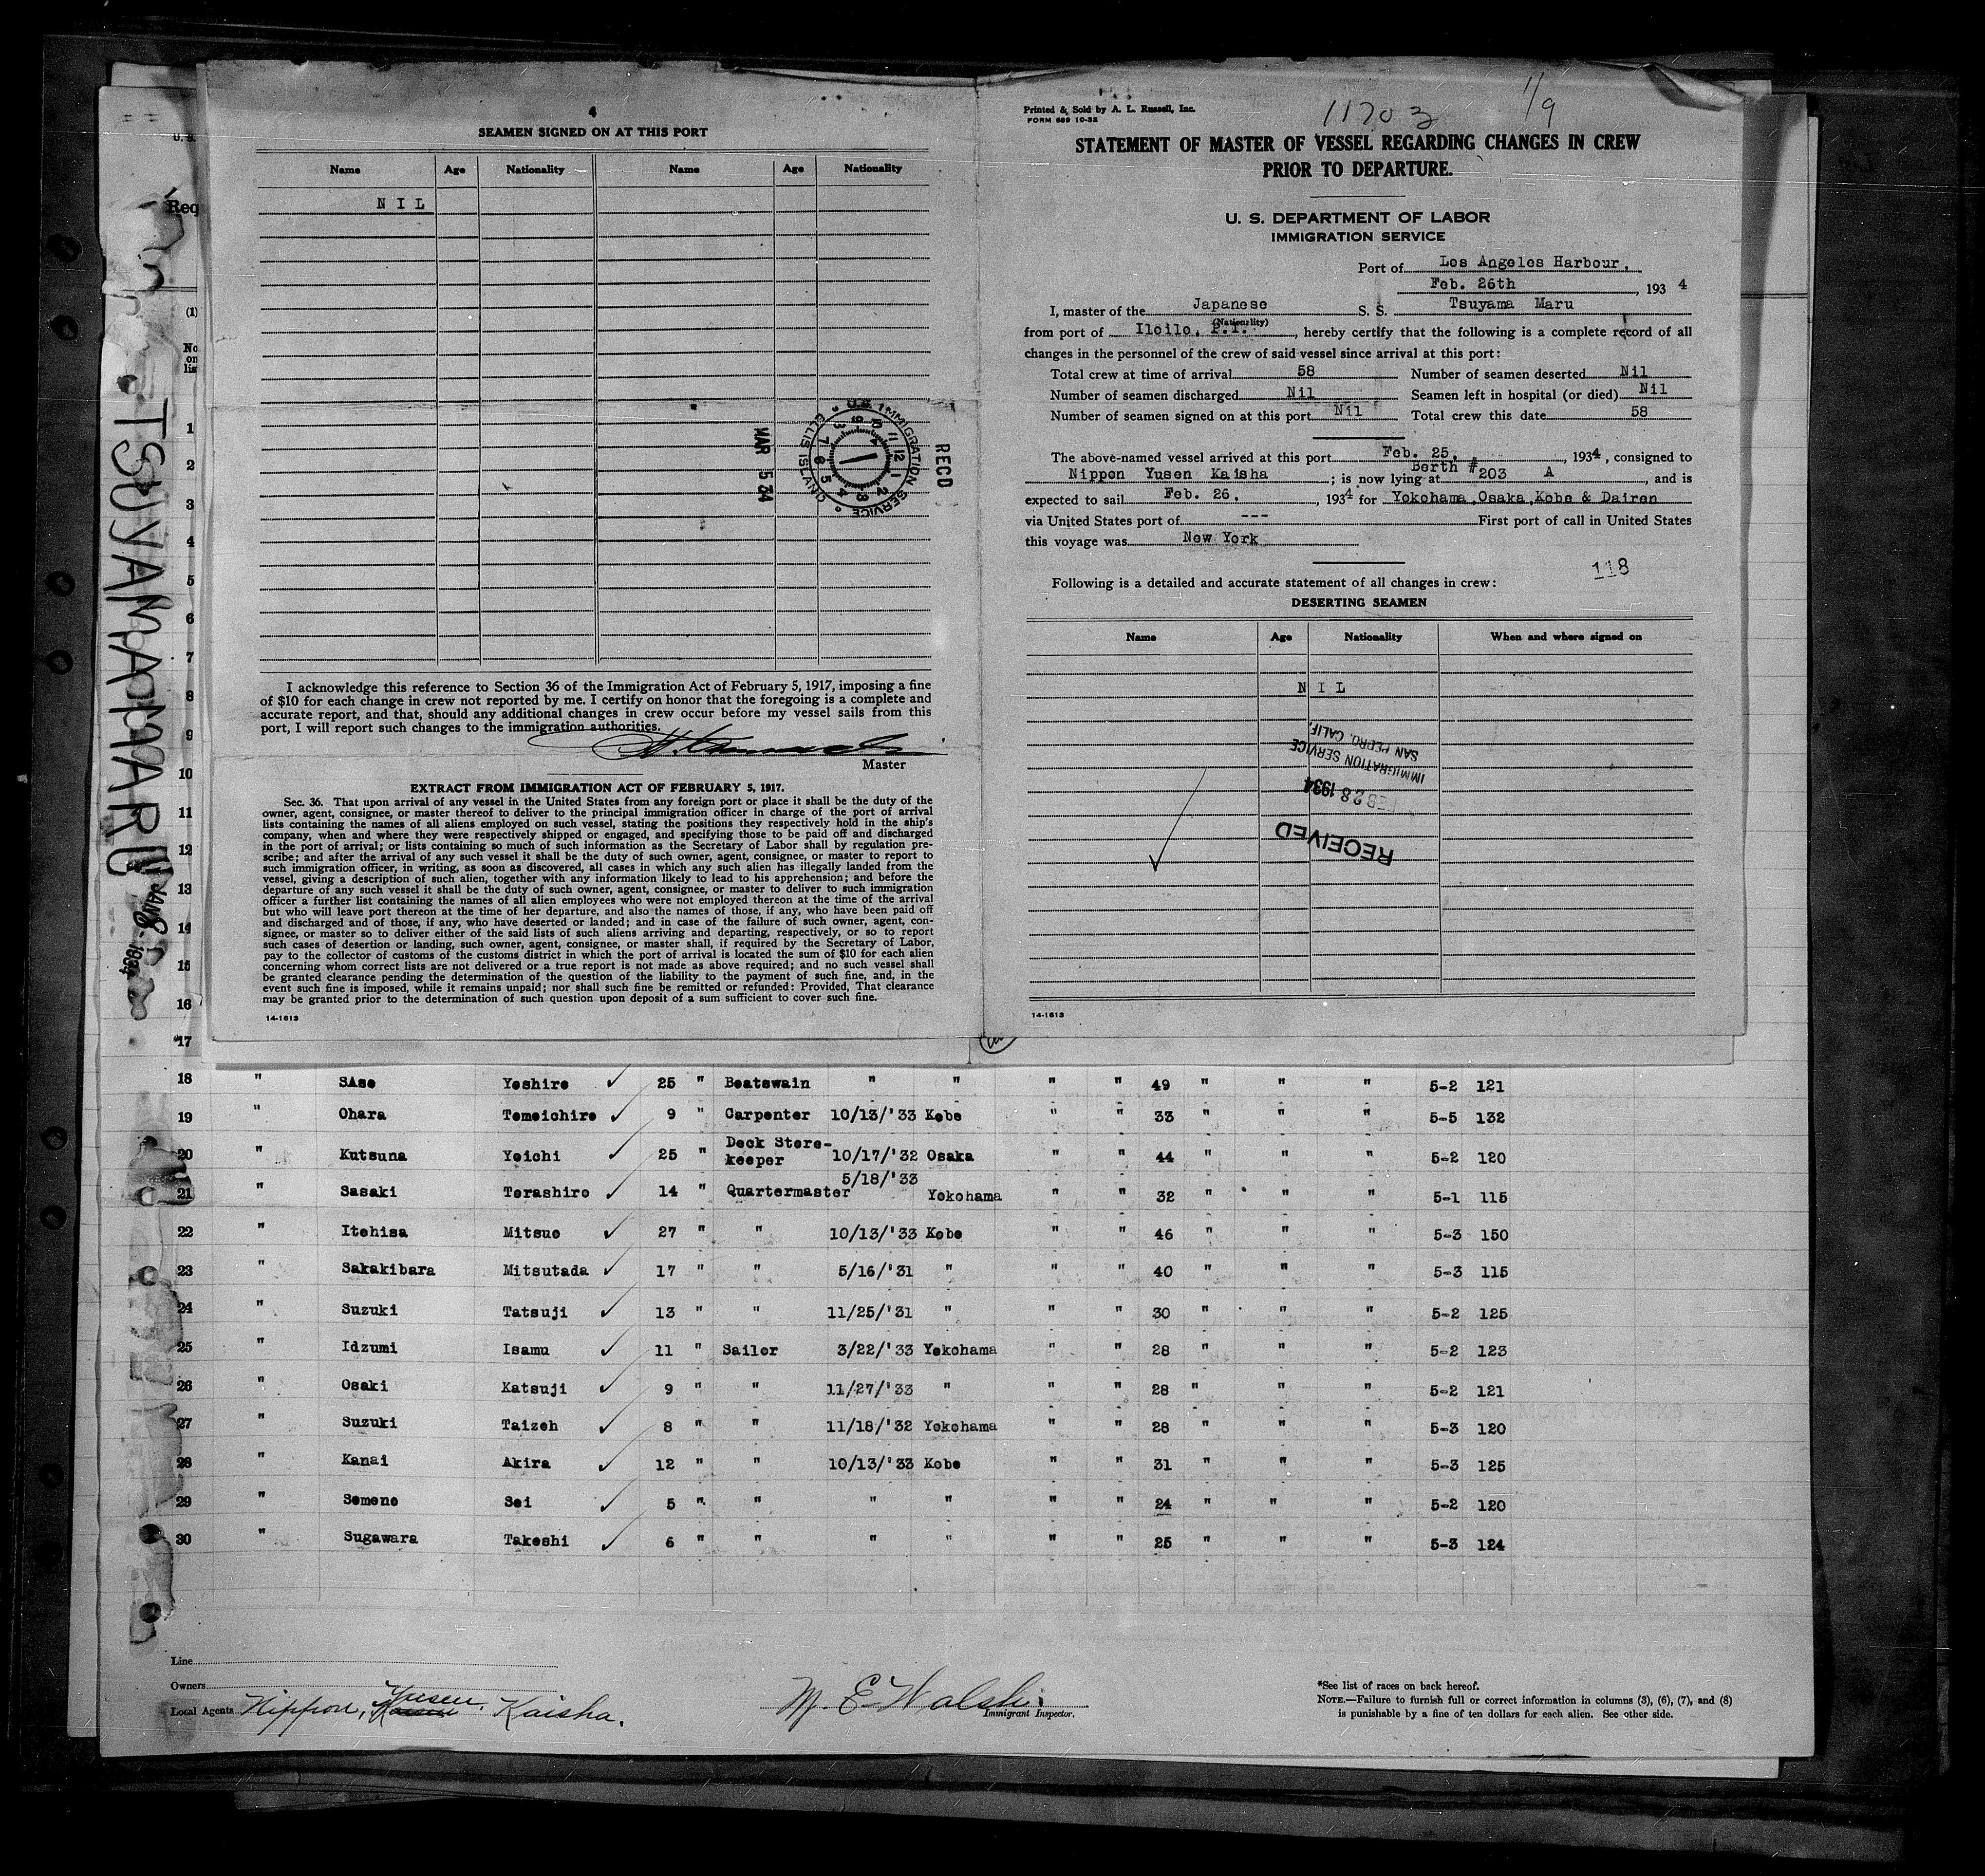 4
SEAMEN SIGNED ON AT THIS PORT
Name Age Nationality Name Age Nationality
NIL
U.S. IMMIGRATION SERVICE ELLIS ISLAND
RECD
MAR 5 34
I acknowledge this reference to Section 36 of the Immigration Act of February 5, 1917, imposing a fine
of $10 for each change in crew not reported by me. I certify on honor that the foregoing is a complete and
accurate report, and that, should any additional changes in crew occur before my vessel sails from this
port, I will report such changes to the immigration authorities.
Master
EXTRACT FROM IMMIGRATION ACT OF FEBRUARY 5, 1917.
Sec. 36. That upon arrival of any vessel in the United States from any foreign port or place it shall be the duty of the
owner, agent, consignee, or master thereof to deliver to the principal immigration officer in charge of the port of arrival
lists containing the names of all aliens employed on such vessel, stating the positions they respectively hold in the ship's
company, when and where they were respectively shipped or engaged, and specifying those to be paid off and discharged
in the port of arrival; or lists containing so much of such information as the Secretary of Labor shall by regulation pre-
scribe; and after the arrival of any such vessel it shall be the duty of such owner, agent, consignee, or master to report to
such immigration officer, in writing, as soon as discovered, all cases in which any such alien has illegally landed from the
vessel, giving a description of such alien, together with any information likely to lead to his apprehension; and before the
departure of any such vessel it shall be the duty of such owner, agent, consignee, or master to deliver to such immigration
officer a further list containing the names of all alien employees who were not employed thereon at the time of the arrival
but who will leave port thereon at the time of her departure, and also the names of those, if any, who have been paid off
and discharged and of those, if any, who have deserted or landed; and in case of the failure of such owner, agent, con-
signee, or master so to deliver either of the said lists of such aliens arriving and departing, respectively, or so to report
such cases of desertion or landing, such owner, agent, consignee, or master shall, if required by the Secretary of Labor,
pay to the collector of customs of the customs district in which the port of arrival is located the sum of $10 for each alien
concerning whom correct lists are not delivered or a true report is not made as above required; and no such vessel shall
be granted clearance pending the determination of the question of the liability to the payment of such fine, and, in the
event such fine is imposed, while it remains unpaid; nor shall such fine be remitted or refunded: Provided, That clearance
may be granted prior to the determination of such question upon deposit of a sum sufficient to cover such fine.
14-1613
Printed & Sold by A. L. Russell, Inc.
FORM 689 10-32
11703 1/9
STATEMENT OF MASTER OF VESSEL REGARDING CHANGES IN CREW
PRIOR TO DEPARTURE.
U. S. DEPARTMENT OF LABOR
IMMIGRATION SERVICE
Port of Los Angeles Harbour,
Feb. 26th, 1934
I, master of the Japanese S. S. Tsuyama Maru
(Nationality)
from port of Iloilo, P.I., hereby certify that the following is a complete record of all
changes in the personnel of the crew of said vessel since arrival at this port:
Total crew at time of arrival 58 Number of seamen deserted Nil
Number of seamen discharged Nil Seamen left in hospital (or died) Nil
Number of seamen signed on at this port Nil Total crew this date 58
The above-named vessel arrived at this port Feb. 25, 1934, consigned to
Nippon Yusen Kaisha; is now lying at Berth #203 A, and is
expected to sail Feb. 26, 1934 for Yokohama, Osaka, Kobe & Dairen
via United States port of --- First port of call in United States
this voyage was New York
118
Following is a detailed and accurate statement of all changes in crew:
DESERTING SEAMEN
Name Age Nationality When and where signed on
NIL
RECEIVED
FEB 28 1934
IMMIGRATION SERVICE
SAN PEDRO, CALIF.
14-1613
TSUYAMA MARU
JAN 8 - 1934
U. S.
Req
(1)
No
on
lis
1
2
3
4
5
6
7
8
9
10
11
12
13
14
15
16
17
18 " SAse Yoshire 25 " Boatswain " " " " 49 " " " 5-2 121
19 " Ohara Temeichire 9 " Carpenter 10/13/'33 Kobe " " 33 " " " 5-5 132
20 " Kutsuna Yeichi 25 " Deck Store-keeper 10/17/'32 Osaka " " 44 " " " 5-2 120
21 " Sasaki Torashiro 14 " Quartermaster 5/18/'33 Yokohama " " 32 " " " 5-1 115
22 " Itehisa Mitsuo 27 " " 10/13/'33 Kobe " " 46 " " " 5-3 150
23 " Sakakibara Mitsutada 17 " " 5/16/'31 " " " 40 " " " 5-3 115
24 " Suzuki Tatsuji 13 " " 11/25/'31 " " " 30 " " " 5-2 125
25 " Idzumi Isamu 11 " Sailor 3/22/'33 Yokohama " " 28 " " " 5-2 123
26 " Osaki Katsuji 9 " " 11/27/'33 " " " 28 " " " 5-2 121
27 " Suzuki Taizeh 8 " " 11/18/'32 Yokohama " " 28 " " " 5-3 120
28 " Kanai Akira 12 " " 10/13/'33 Kobe " " 31 " " " 5-3 125
29 " Semene Sei 5 " " " " " " 24 " " " 5-2 120
30 " Sugawara Takeshi 6 " " " " " " 25 " " " 5-3 124
Line
Owners
Local Agents Nippon, Yusen Kaisha.
M. E. Walsh
Immigrant Inspector.
*See list of races on back hereof.
NOTE.—Failure to furnish full or correct information in columns (3), (6), (7), and (8)
is punishable by a fine of ten dollars for each alien. See other side.